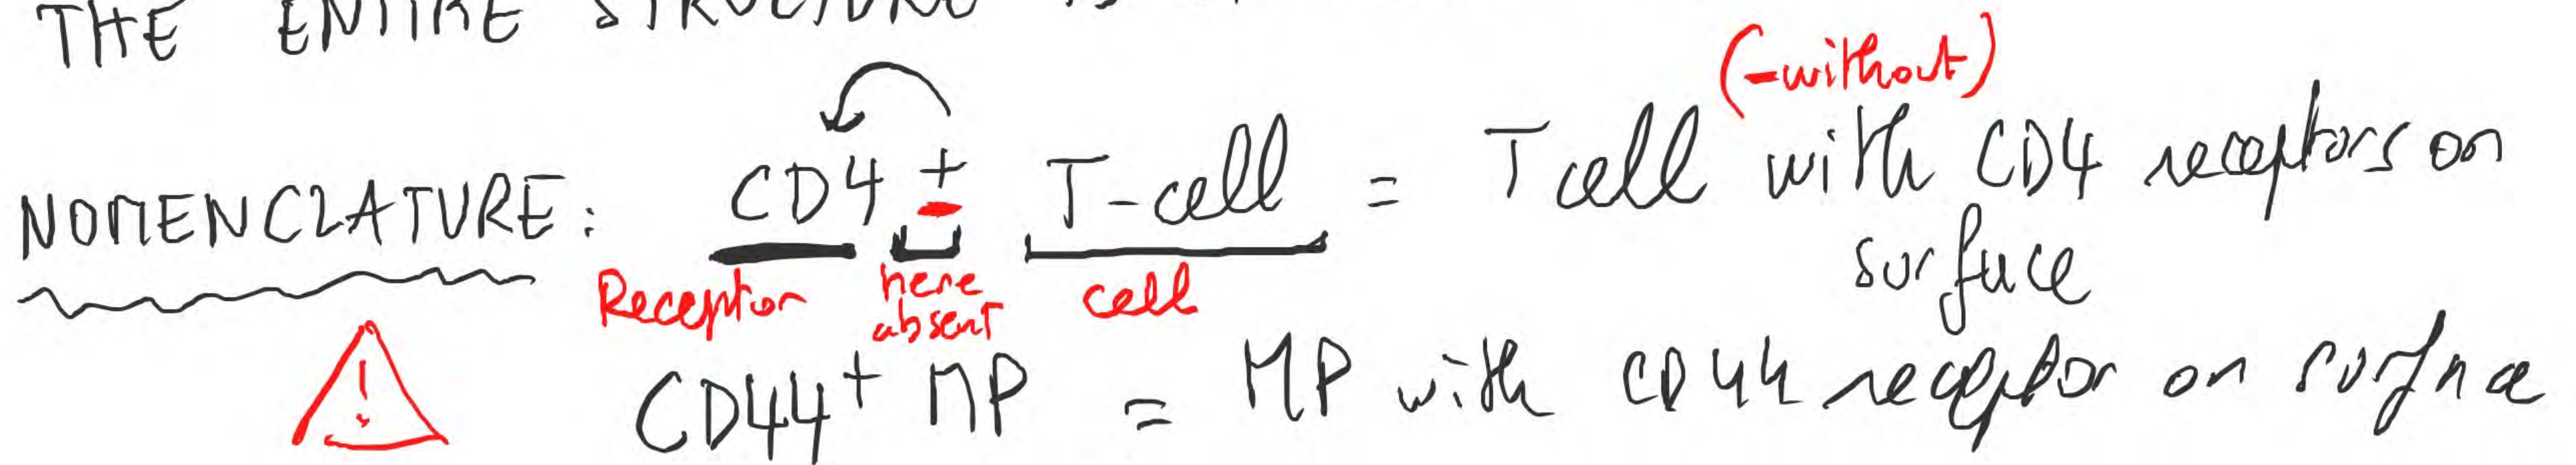 THE ENTIRE STRUCTURE
(-without)
NOMENCLATURE: CD4 ± T-cell = T cell with CD4 receptors on
surface
Receptor here absent cell
CD44+ MP = MP with CD44 receptor on surface
!